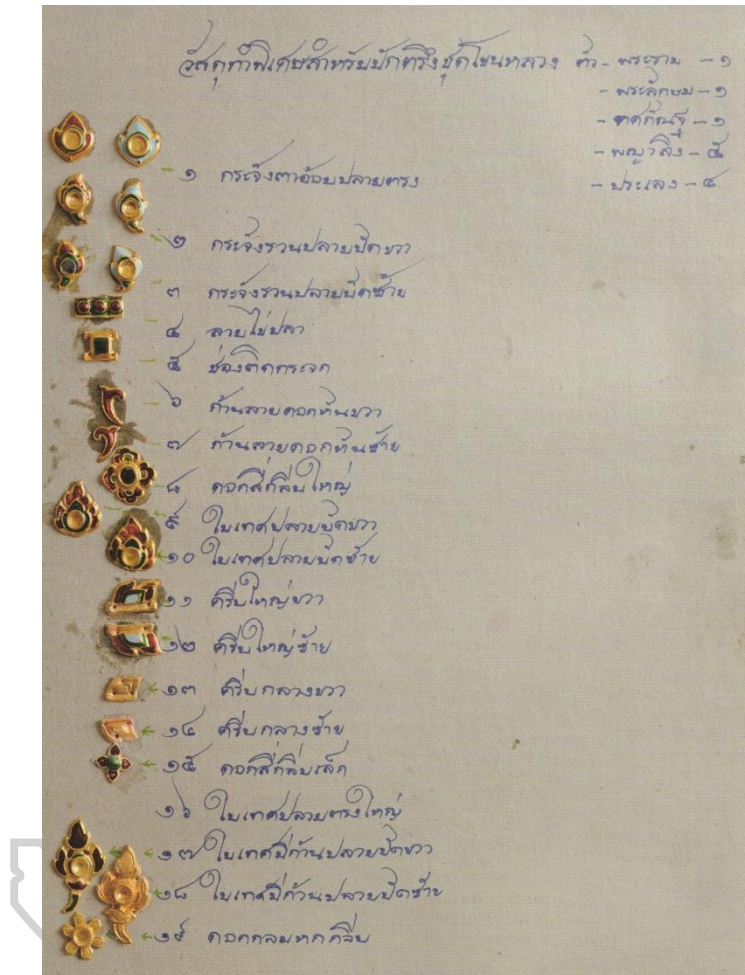 วัสดุทำพิเศษสำหรับปักตรึงชุดโขนหลวง ตัว - พระราม - ๑
- พระลักษมณ - ๑
- ทศกัณฐ - ๑
- พญาลิง - ๕
- ประเลง - ๔
๑ กระจังตาอ้อยปลายตรง
๒ กระจังรวนปลายบิดขวา
๓ กระจังรวนปลายบิดซ้าย
๔ ลายไข่ปลา
๕ ช่องติดกระจก
๖ ก้านลายดอกหินขวา
๗ ก้านลายดอกหินซ้าย
๘ ดอกสี่กลีบใหญ่
๙ ใบเทศปลายบิดขวา
๑๐ ใบเทศปลายบิดซ้าย
๑๑ ครีบใหญ่ขวา
๑๒ ครีบใหญ่ซ้าย
๑๓ ครีบกลางขวา
๑๔ ครีบกลางซ้าย
๑๕ ดอกสี่กลีบเล็ก
๑๖ ใบเทศปลายตรงใหญ่
๑๗ ใบเทศมีก้านปลายบิดขวา
๑๘ ใบเทศมีก้านปลายบิดซ้าย
๑๙ ดอกกลมหกกลีบ